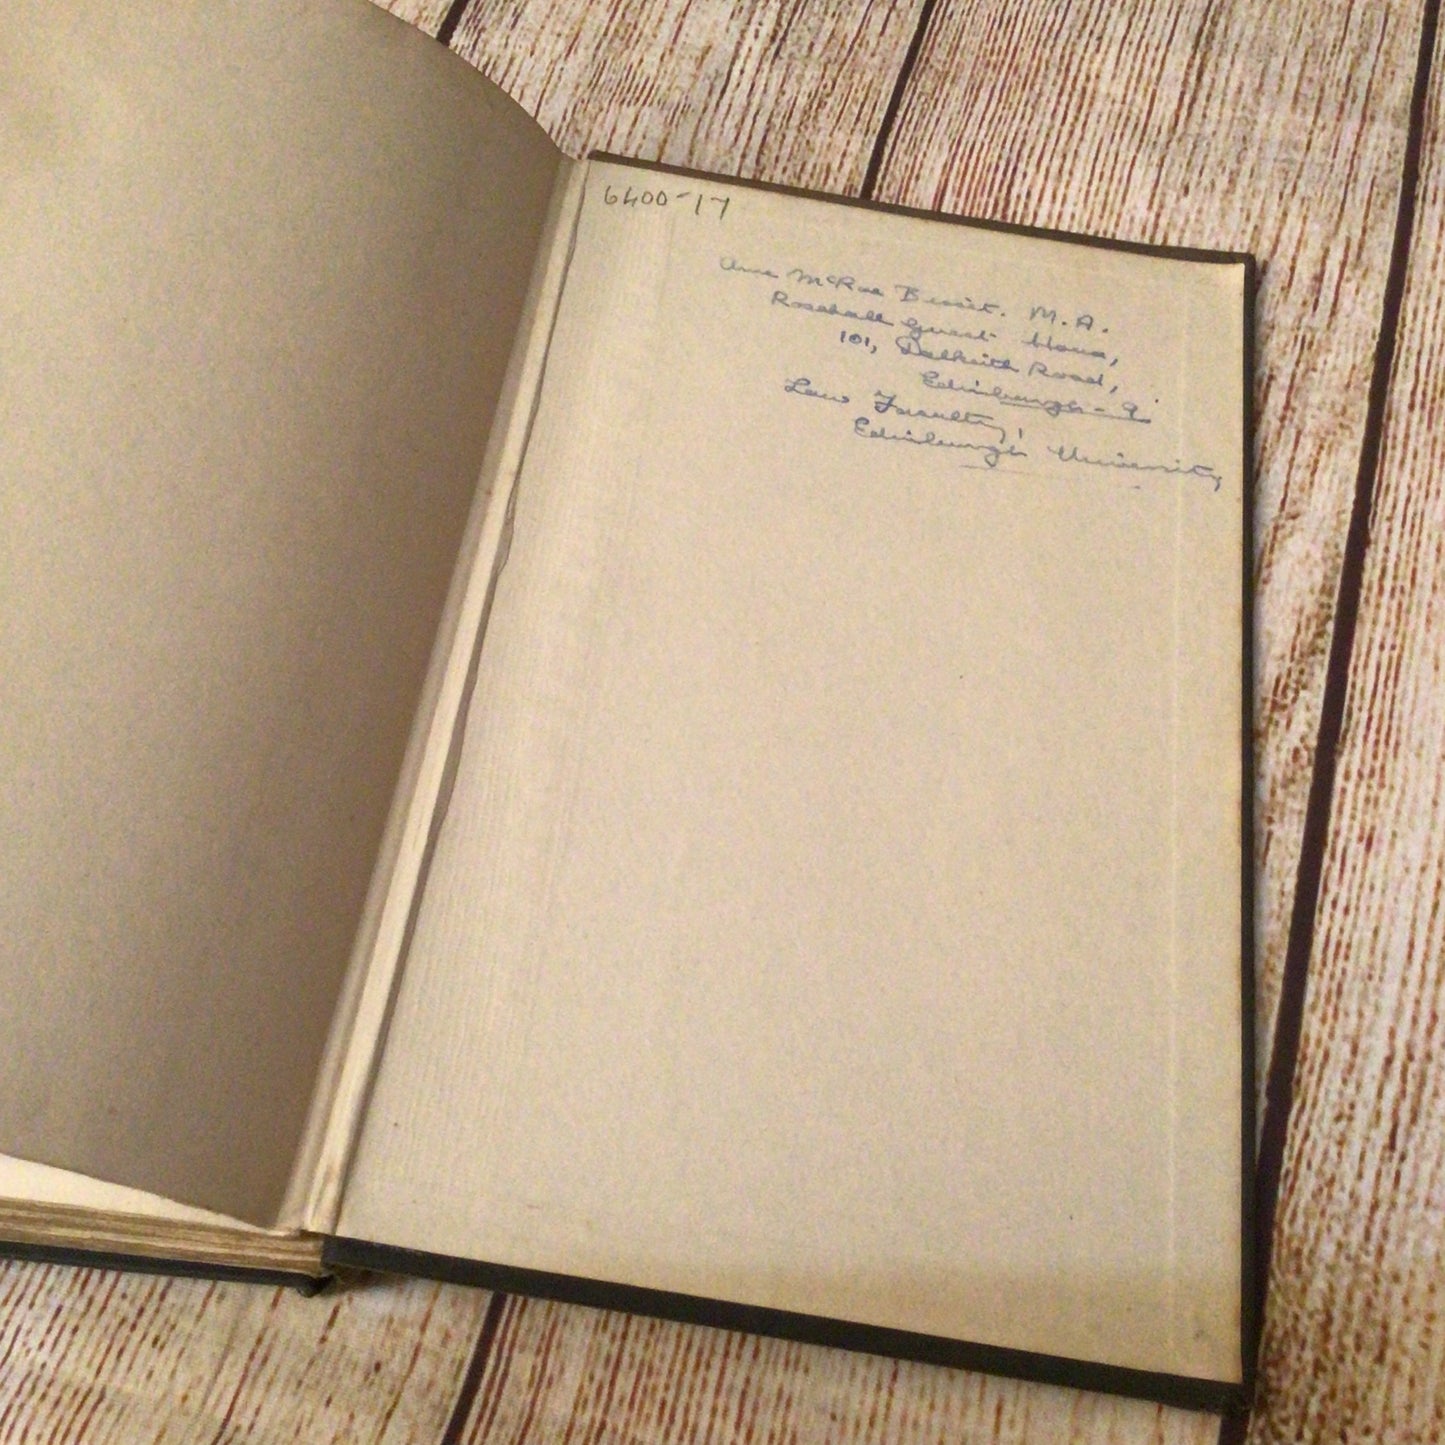 6400-17
Anne McRae Bisset. M.A.
Rosehall Guest House,
101, Dalkeith Road,
Edinburgh - 9.
Law Faculty,
Edinburgh University